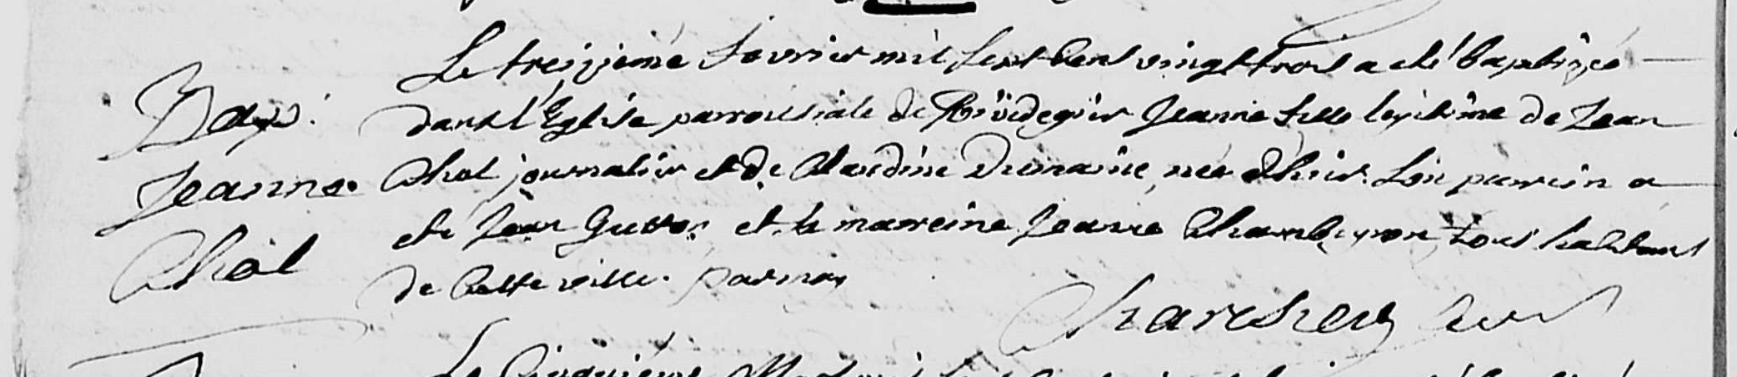 Bap.
Jeanne
Chol
Le treizieme fevrier mil sept cent vingt trois a été baptizée
dans l'Eglise parroissiale de Rivedegier Jeanne fille legitime de Jean
Chol journalier et de Claudine Dumaine, née d'hier. Son parrein a
eté Jean et la marreine Jeanne Chambeyron, tous habitans
de cette ville. par moy